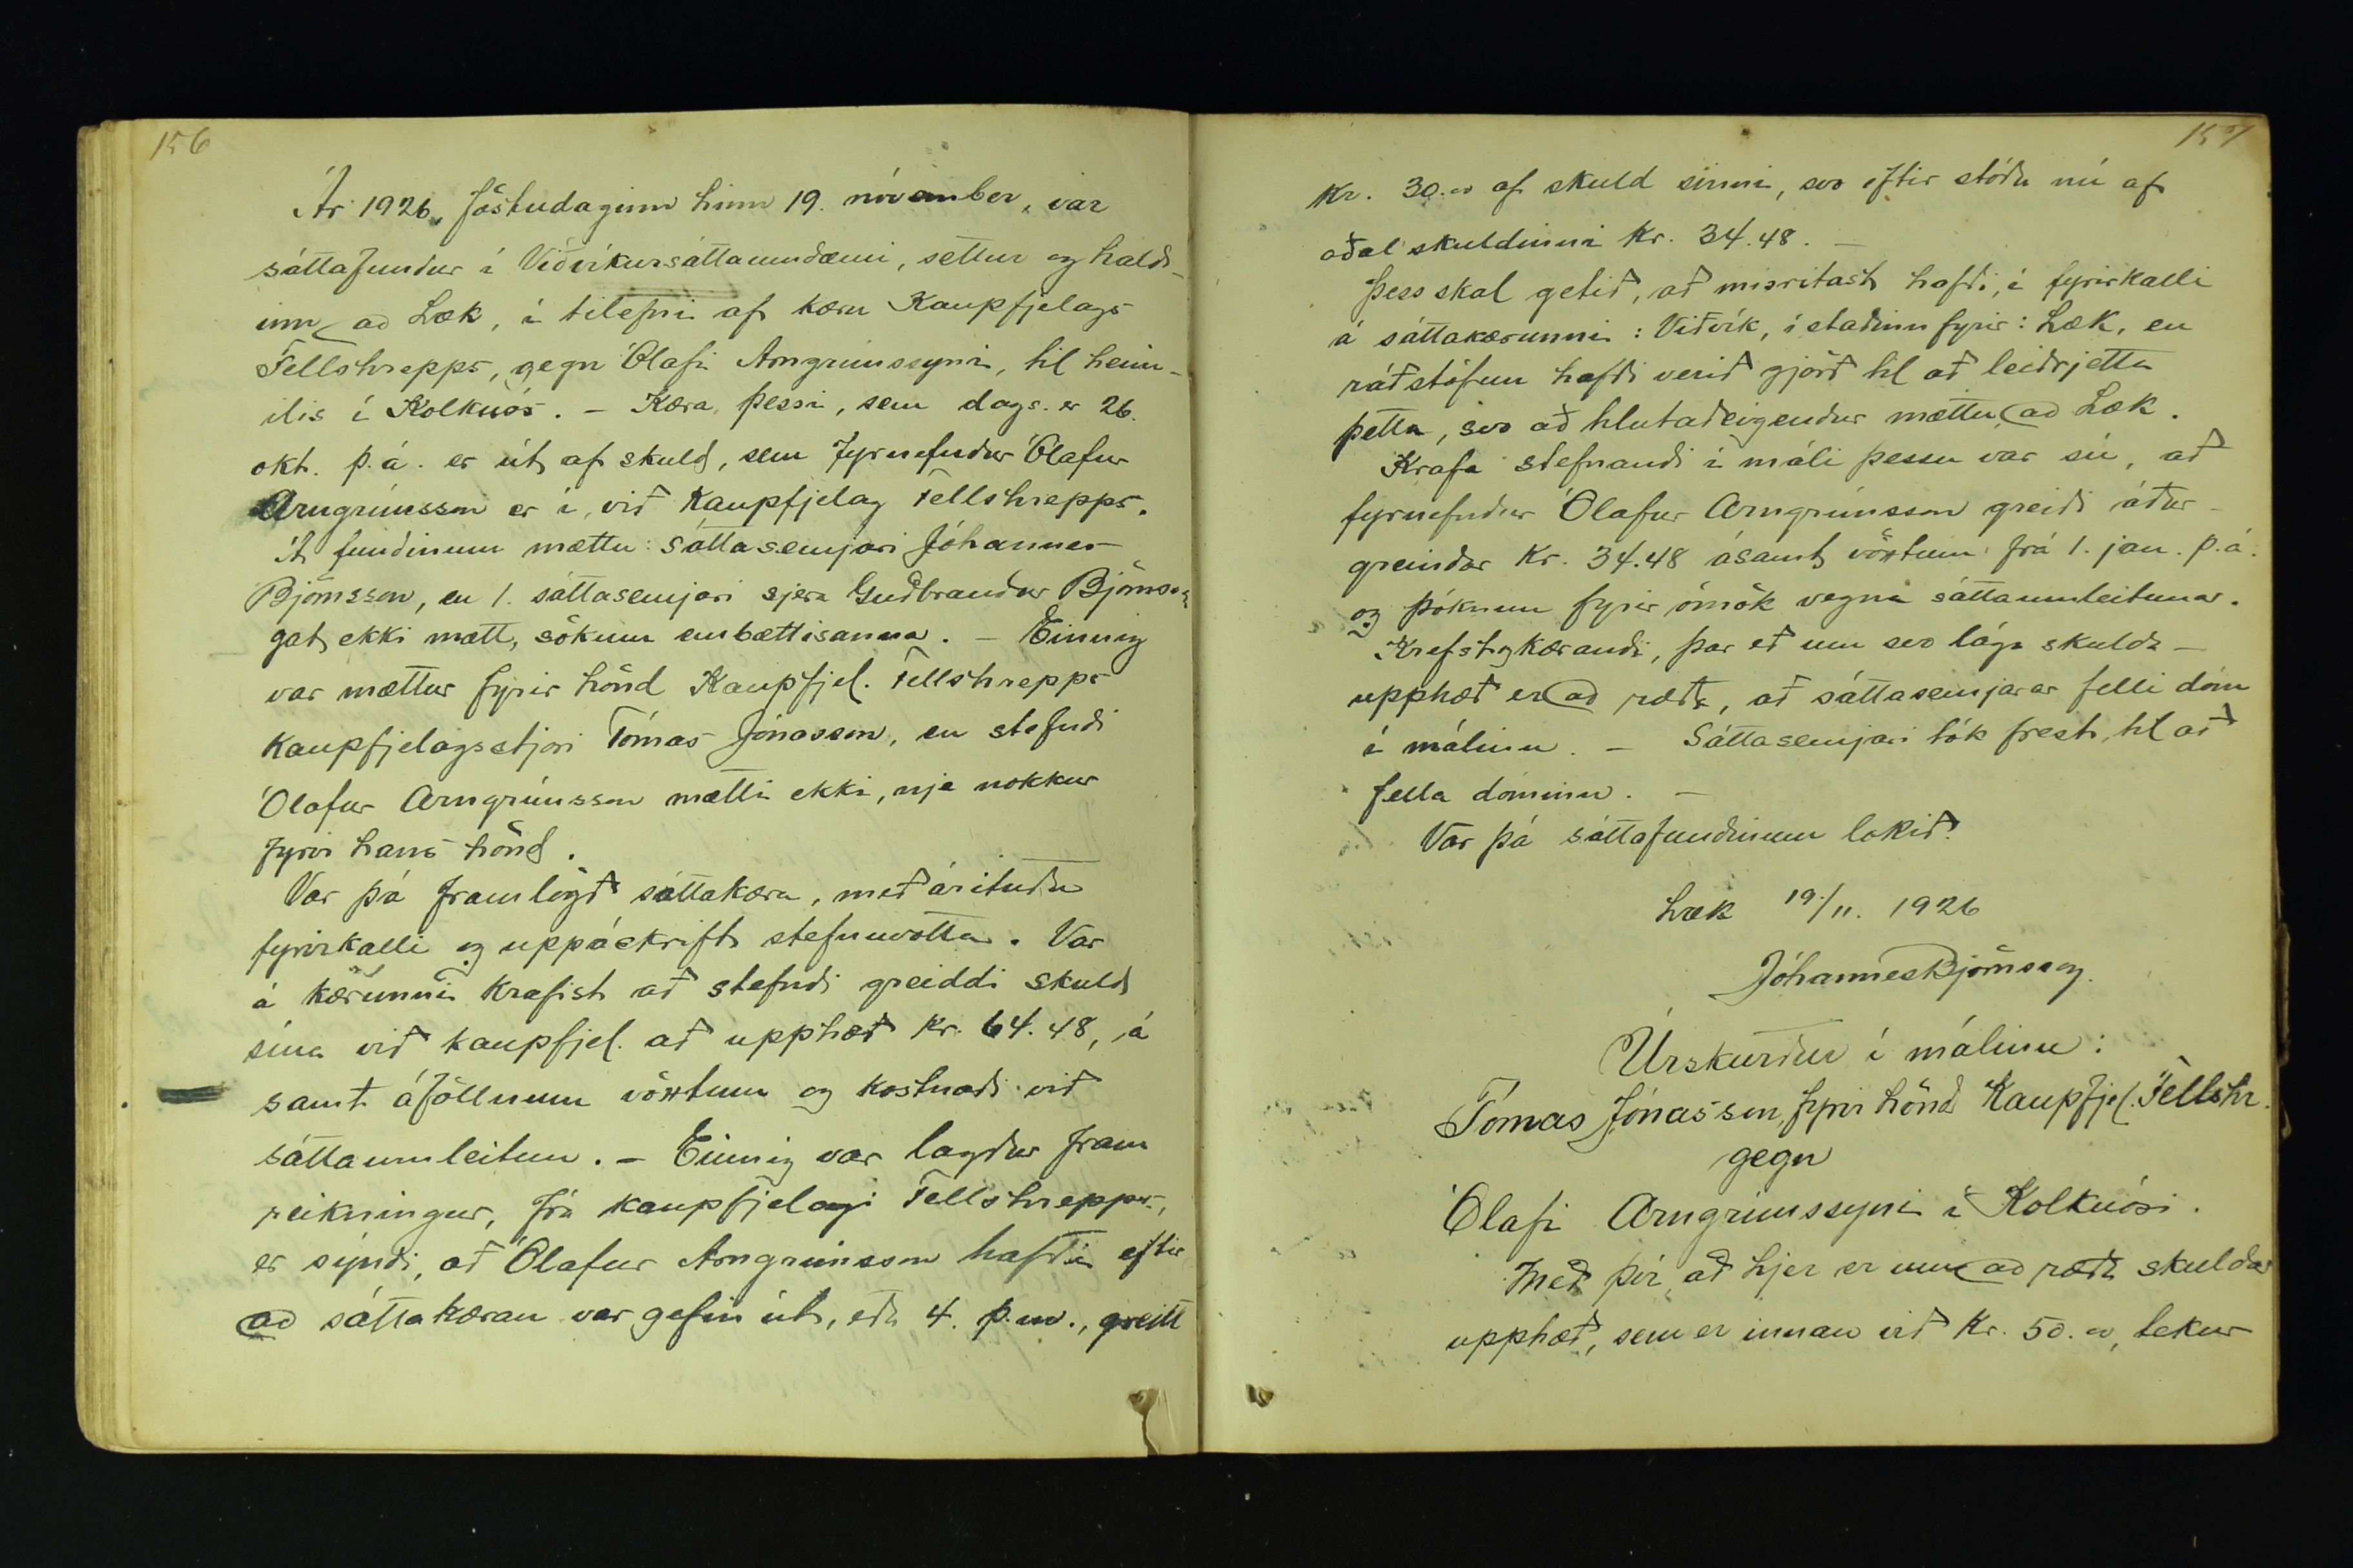 156
Ár 1926, föstudaginn hinn 19. nóvember, var
sáttafundur í Viðvíkursáttaumdæmi, settur og hald-
inn að Læk, í tilefni af kæru Kaupfjelags
Fellshrepps, gegn Ólafi Arngrímssyni, til heim-
ilis í Kolkuós. - Kæra þessi, sem dags. er 26.
okt. þ.á. er út af skuld, sem fyrnefndur Ólafur
Arngrímsson er í, við Kaupfjelag Fellshrepps.
Á fundinum mættu: Sáttasemjari Jóhannes
Björnsson, en 1. sáttasemjari sjera Guðbrandur Björnsson
gat ekki mætt, sökum embættisanna. - Einnig
var mættur fyrir hönd Kaupfjel. Fellshrepps
Kaupfjelagsstjóri Tómas Jónasson, en stefndi
Ólafur Arngrímsson mætti ekki, nje nokkur
fyrir hans hönd.
Var þá framlögð sáttakæra, með árituðu
fyrirkalli og uppáskrift stefnuvotta. Var
á kærunni krafist að stefndi greiddi skuld
sína við kaupfjel. að upphæð kr. 64.48, á
samt áföllnum vöxtum og kostnaði við
sáttaumleitun. - Einnig var lagður fram
reikningur, frá kaupfjelagi Fellshrepps,
er sýndi, að Ólafur Arngrímsson hafði eftir
að sáttakæran var gefin út, eða 4. þ.m., greitt
157
Kr. 30.00 af skuld sinni, svo eftir stóðu nú af
aðal skuldinni Kr. 34.48. -
Þess skal getið, að misritast hafði, í fyrirkalli
á sáttakærunni: Viðvík, í staðinn fyrir: Læk, en
ráðstöfun hafði verið gjörð til að leiðrjetta
þetta, svo að hlutaðeigendur mættu að Læk.
Krafa stefnandi í máli þessu var sú, að
fyrnefndur Ólafur Arngrímsson greiði áður-
greindar Kr. 34.48 ásamt vöxtum frá 1. jan. þ.á.
og þóknun fyrir ómök vegna sáttaumleitunar.
Krefst og kærandi, þar eð um svo lága skulda-
upphæð er að ræða, að sáttasemjarar felli dóm
í málinu. - Sáttasemjari tók frest, til að
fella dóminn. -
Var þá sáttafundinum lokið.
Læk 19./11. 1926
Jóhannes Björnsson.
Úrskurður í málinu:
Tómas Jónasson, fyrir hönd Kaupfjel. Fellshr.
gegn
Ólafi Arngrímssyni í Kolkuósi.
Með því, að hjer er um að ræða skulda
upphæð, sem er innan við Kr. 50.00, tekur